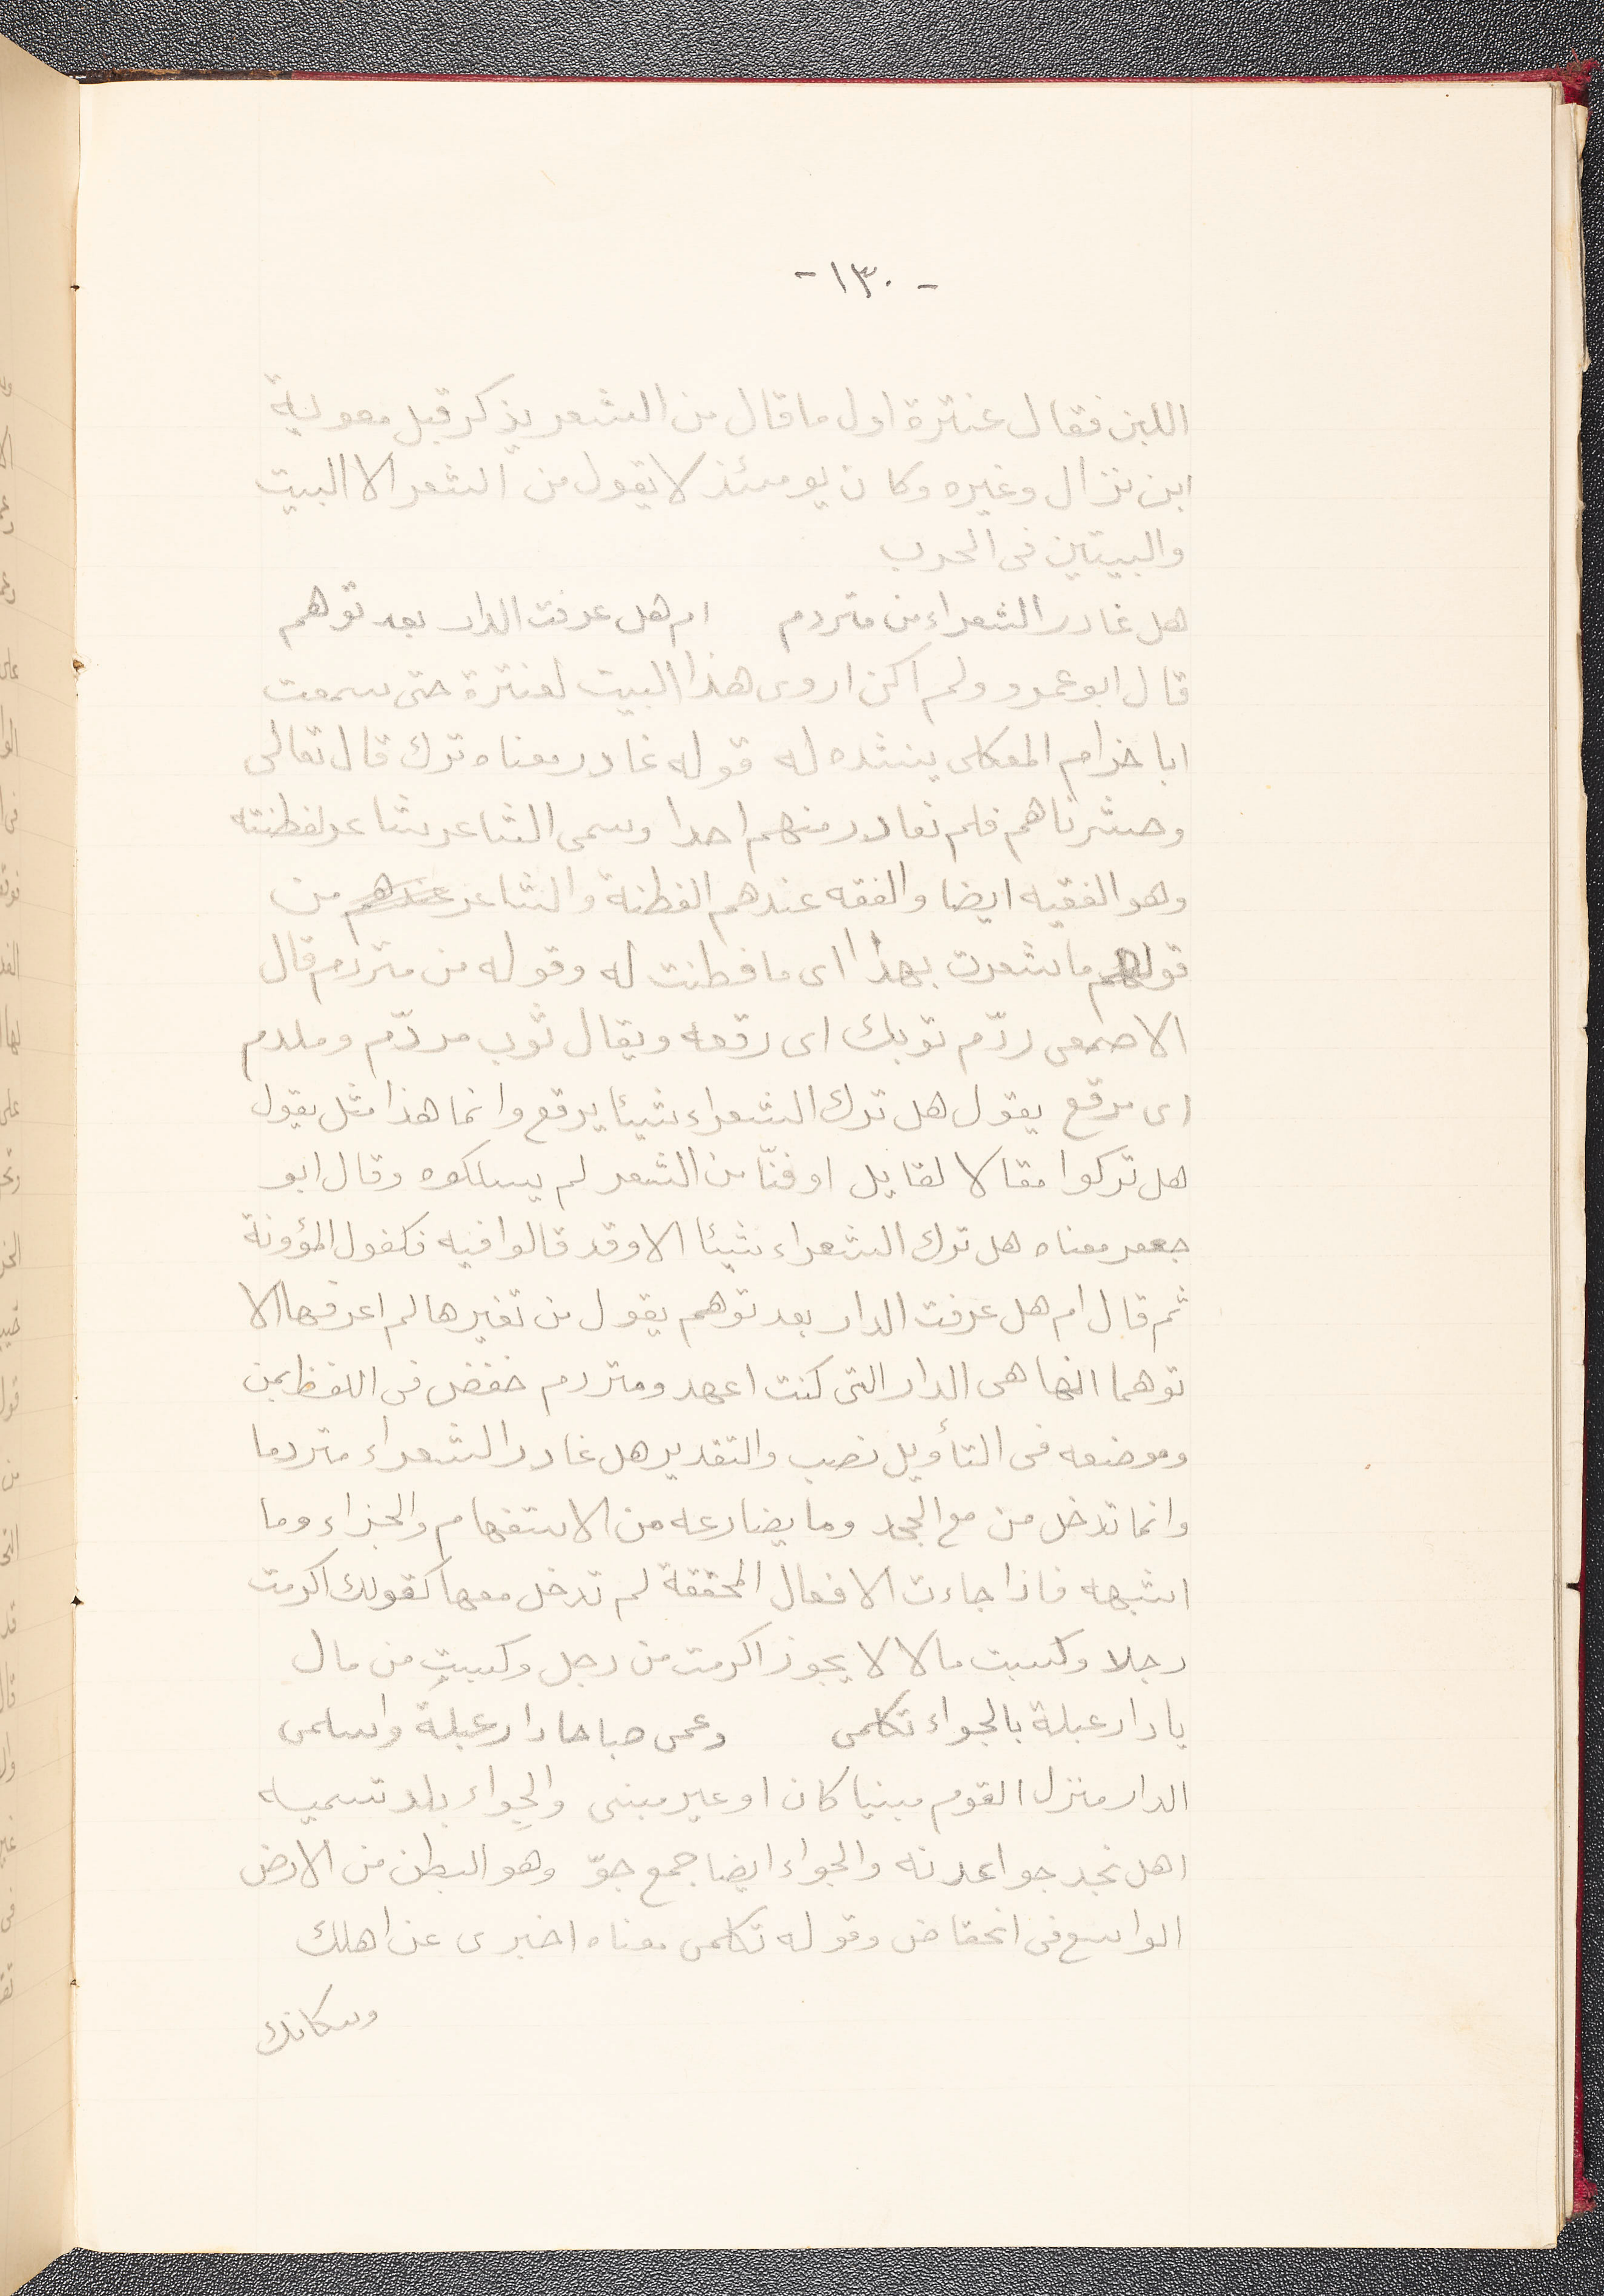 - ١٣٠ -
اللبن فقال عنترة اول ما قال من الشعر يذكر قبل معوية
ابن نزال وغيره وكان يومئذ لا يقول من الشعر الا البيت
والبيتين فى الحرب
هل غادر الشعراء من متردم ام هل عرفت الدار بعد توهم
قال ابو عمرو ولم اكن اروى هذا البيت لعنترة حتى سمعت
ابا خزام العكلى ينشده له قوله غادر معناه ترك قال تعالى
وحشرناهم فلم نغادر منهم احدا وسمى الشاعر شاعر لفطنته
وهو الفقيه ايضا والفقه عندهم الفطنة والشاعر عندهم من
قولهم ما شعرت بهذا اى ما فطنت له وقوله من متردم قال
الاصمعى ردّم ثوبك اى رقعه ويقال ثوب مردّم وملدم
اى مرقع يقول هل ترك الشعراء شيئا يرقع وانما هذا مثل يقول
هل تركوا مقالا لقايل او فنّا من الشعر لم يسلكوه وقال ابو
جعفر معناه هل ترك الشعراء شيئا الا وقد قالوا فيه فكفوا المؤونة
ثم قال ام هل عرفت الدار بعد توهم يقول من تغيرها لم اعرفها الا
توهما انها هى الدار التى كنت اعهد ومتردم خفض فى اللفظ بمن
وموضعه فى التأويل نصب والتقدير هل غادر الشعراء متردما
وانما تدخل من مع الجحد وما يضارعه من الاستفهام والجزاء وما
اشبهه فاذا جاءت الافعال المحققة لم تدخل معها كقولك اكرمت
رجلا وكسبت مالا لا يجوز اكرمت من رجل وكسبت من مال
يا دار عبلة بالجواء تكلمى وعمى صباحا دار عبلة واسلمى
الدار منزل القوم مبنيا كان او غير مبنى والجِواء بلد تسميه
اهل نجد جوا عدنه والجواء ايضا جمع جوّ وهو البطن من الارض
الواسع فى انخفاض وقوله تكلمى معناه اخبرى عن اهلك
وسكانك